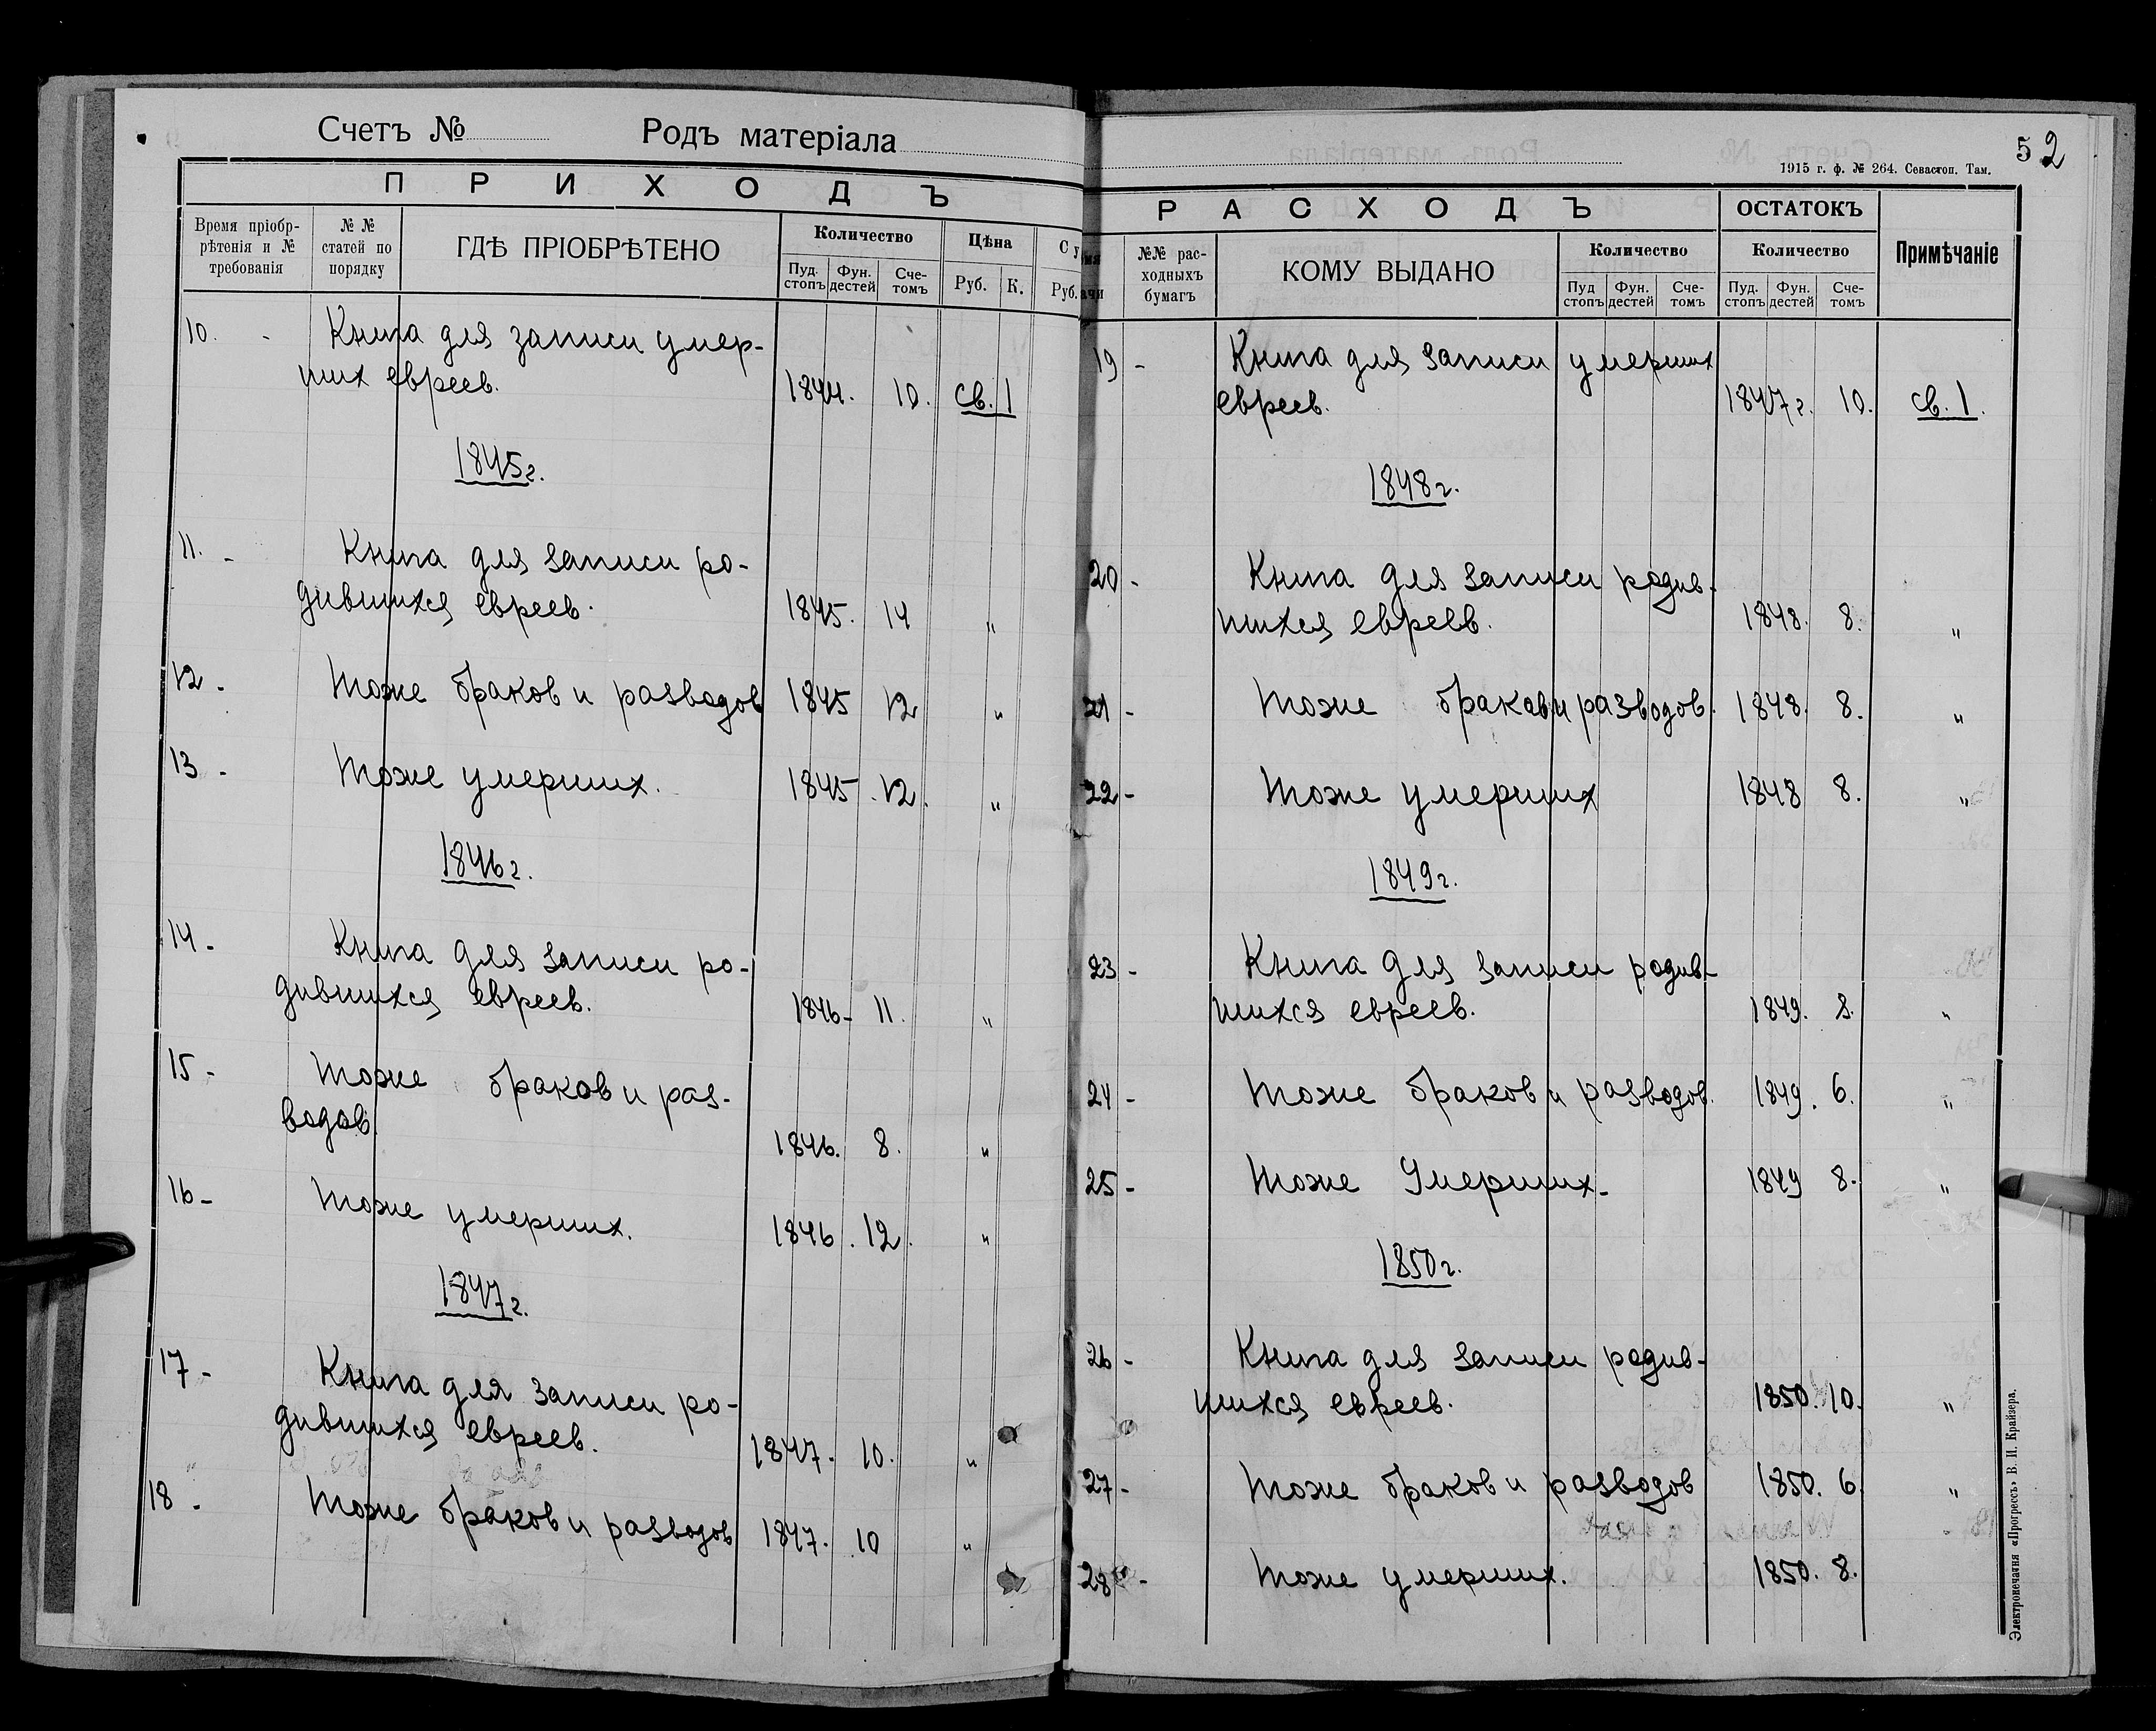 Счетъ № Родъ матеріала
ПРИХОДЪ
Время пріобр-
рѣтенія и №
требованія
№ №
статей по
порядку
ГДѢ ПРІОБРѢТЕНО
Количество
Пуд. стопъ
Фун. дестей
Сче-
томъ
Цѣна
Руб. К.
Су
Руб.
10. - Книга для записи умер-
ших евреев. 1844. 10. св. 1
1845г.
11. - Книга для записи ро-
дившихся евреев. 1845. 14 "
12. - Тоже браков и разводов 1845 12 "
13. - Тоже умерших. 1845. 12. "
1846г.
14 - Книга для записи ро-
дившихся евреев. 1846- 11. "
15 - Тоже браков и раз-
водов. 1846. 8. "
16 - Тоже умерших. 1846. 12. "
1847г.
17 - Книга для записи ро-
дившихся евреев. 1847. 10. "
18. Тоже браков и разводов 1847. 10 "
52
1915 г. ф. № 264. Севастоп. Там.
РАСХОДЪ
ОСТАТОКЪ
Примѣчаніе
№№ рас-
ходныхъ
бумагъ
КОМУ ВЫДАНО
Количество
Пуд стопъ
Фун. дестей
Сче-
томъ
Количество
Пуд. стопъ
Фун. дестей
Сче-
томъ
19 - Книга для записи умерших
евреев. 1847г. 10. св. 1.
1848г.
20 - Книга для записи родив-
шихся евреев. 1848. 8. "
21 - Тоже браков и разводов. 1848. 8. "
22 - Тоже умерших 1848 8. "
1849г.
23 - Книга для записи родив-
шихся евреев. 1849. 8. "
24 - Тоже браков и разводов. 1849. 6. "
25 - Тоже Умерших. 1849 8. "
1850г.
26 - Книга для записи родив-
шихся евреев. 1850. 10. "
27 - Тоже браков и разводов 1850. 6. "
28 - Тоже умерших. 1850. 8.
Электропечатня «Прогрессъ» В. И. Крайзера.